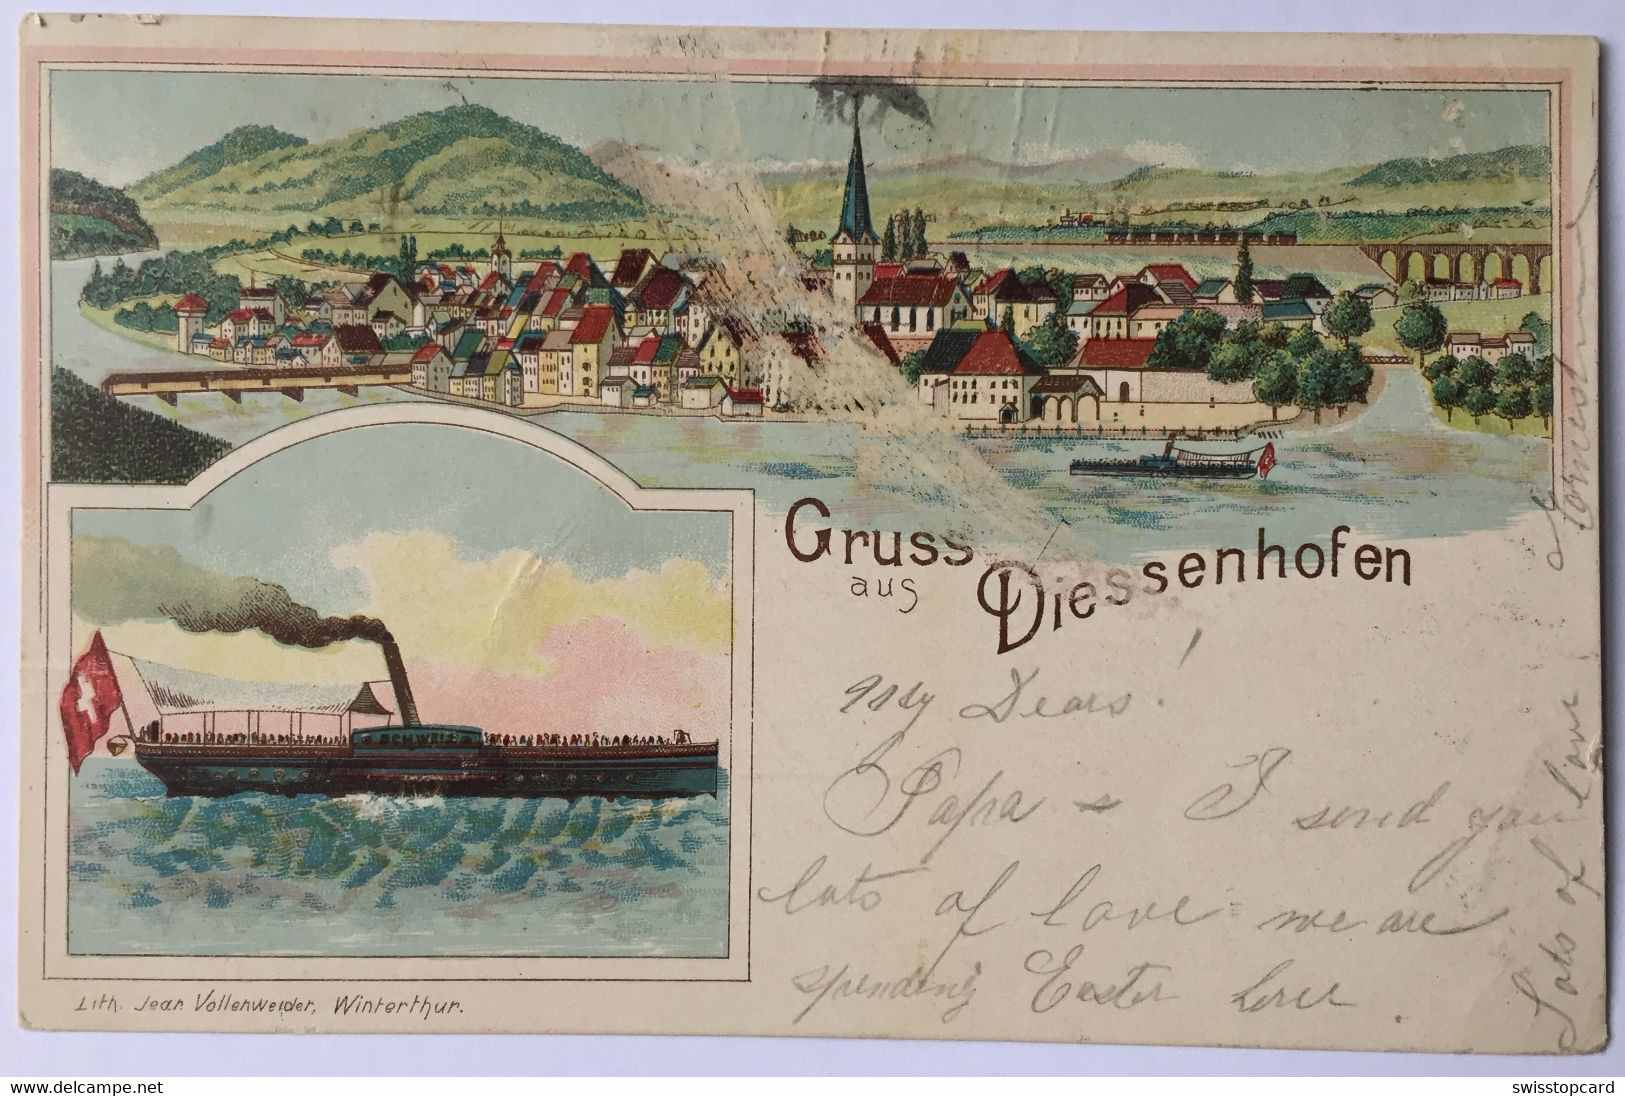 Gruss
aus
Diessenhofen
SCHWEIZ
My Dears!
Papa & I send you
lots of love we are
spending Easter here.
Lots of love
Lith. Jean Vollenweider, Winterthur.
www.delcampe.net
swisstopcard